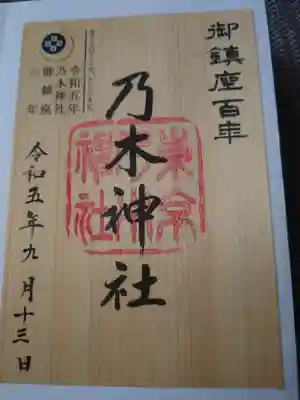 御鎮座百年
令和五年
乃木神社
御鎮座
百年
乃木神社
令和五年九月十三日